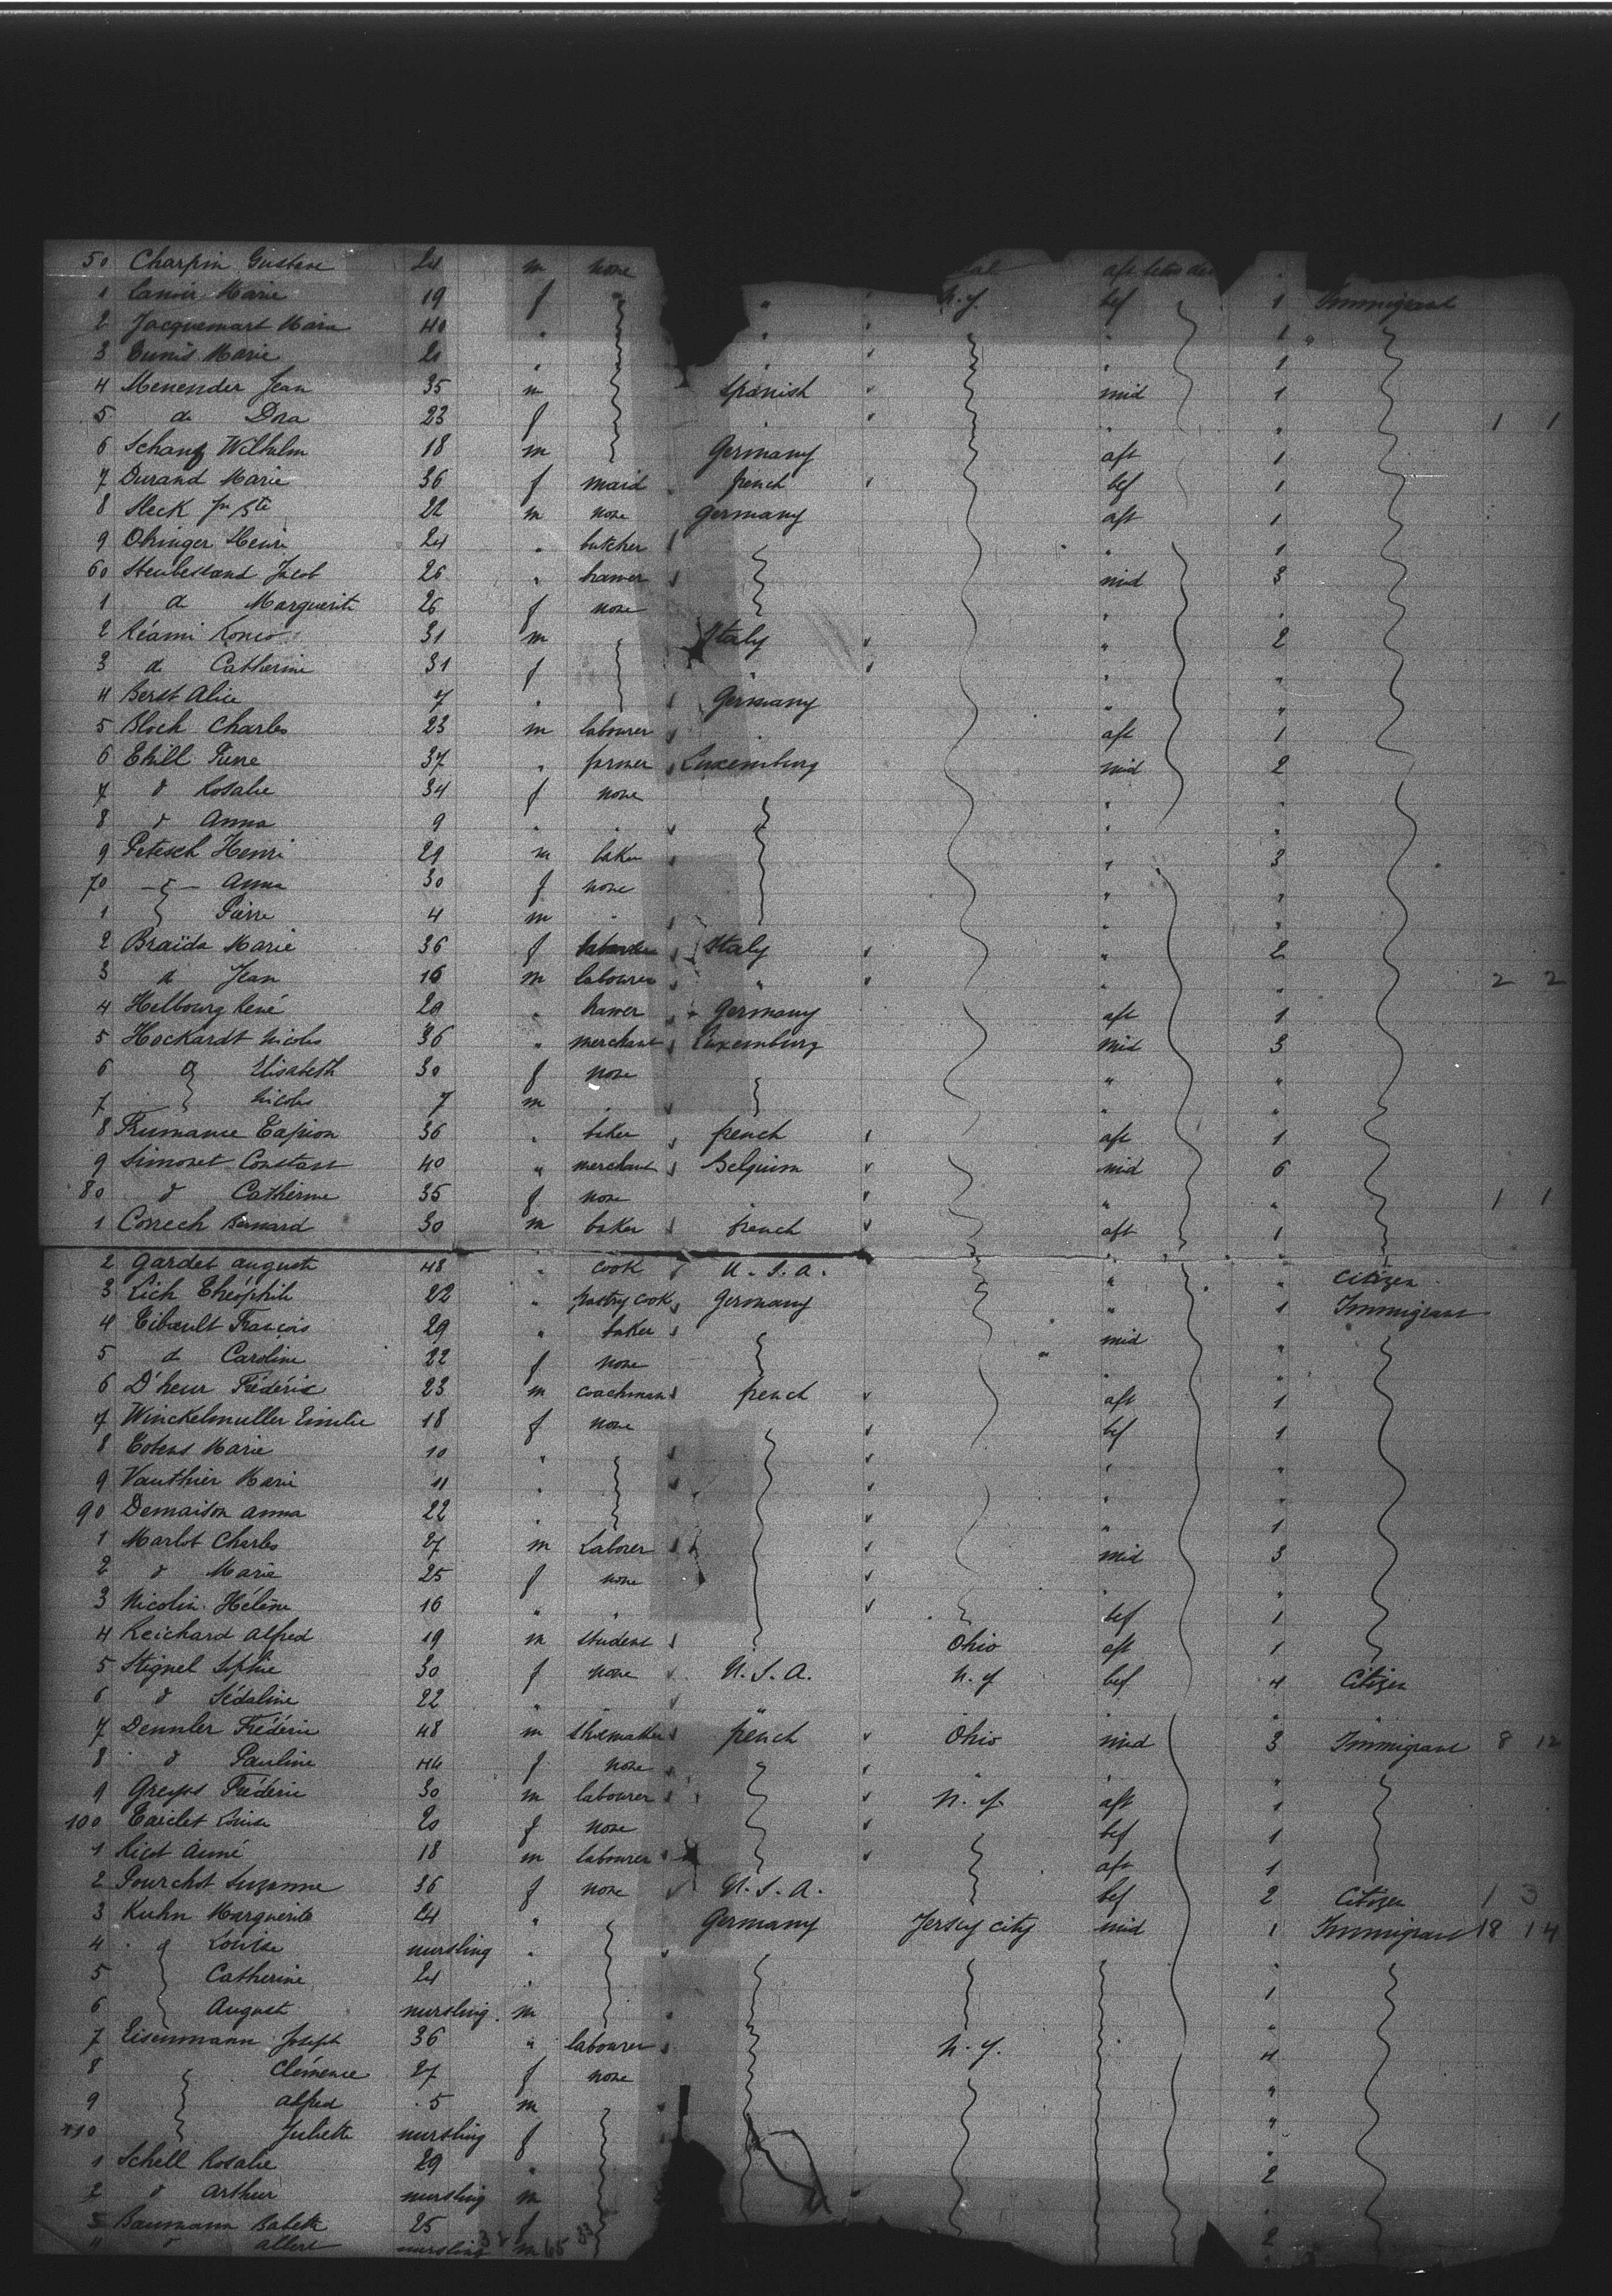 50 Charpin Gustave 24 m none aft
1 Lanoir Marie 19 f " " N.Y. bef 1 Immigrant
2 Jacquemart Marie 40 " " " 1 "
3 Marie 21 " " " 1
4 Menender Jean 35 m Spanish mid 1
5 d Dora 23 f " " 1 1
6 Schanz Wilhelm 18 m Germany aft 1
7 Durand Marie 36 f maid french bef 1
8 Steck Jn Bte 22 m none Germany aft 1
9 Ohinger Henri 24 " butcher " 1
60 Jacob 26 " mid 3
1 d Marguerite 26 f none " "
2 Réami 31 m Italy " 2
3 d Catherine 31 f " " "
4 Berst Alice 7 " Germany " "
5 Bloch Charles 23 m labourer " aft 1
6 Ehill Pierre 37 " Luxemburg mid 2
7 d Rosalie 34 f none " "
8 d Anna 9 " " " "
9 Petesch Henri 29 m baker " 3
70 Anna 30 f none " "
1 Pierre 4 m " " "
2 Braïda Marie 36 f Italy " 2
3 d Jean 16 m labourer " " " 2 2
4 Helbourg René 29 " Germany aft 1
5 Hockardt Nicolas 36 " merchant Luxemburg mid 3
6 d Elisabeth 30 f none " "
7 Nicolas 7 m " " "
8 Capion 36 " baker french aft 1
9 Simonet Constant 40 " merchant Belgium mid 6
80 d Catherine 35 f none " " " 1 1
1 Correch Bernard 30 m baker french aft 1
2 Gardet Auguste 48 " cook U.S.A. " " Citizen
3 Lich Théophile 22 " pastry cook Germany " 1 Immigrant
4 Tibault François 29 " baker mid "
5 d Caroline 22 f none " "
6 D'heur Frédéric 23 m coachman french aft 1
7 Winckelmuller Emilie 18 f none bef 1
8 Marie 10 " " "
9 Vauthier Marie 11 " " "
90 Demaison Anna 22 " " 1
1 Marlot Charles 27 m Laborer mid 3
2 d Marie 25 f none " "
3 Nicolin Hélène 16 " " bef 1
4 Reichard Alfred 19 m student Ohio aft 1
5 Stignel Sophie 30 f none U.S.A. N.Y bef 4 Citizen
6 d 22 " " " " "
7 Dennler Frédéric 48 m shoemaker french Ohio mid 3 Immigrant 8 12
8 d Pauline 44 f none " " "
9 Frédéric 30 m labourer N.Y. aft 1
100 Louise 20 f none bef 1
1 Ricot Aimé 18 m labourer aft 1
2 Pourchot Suzanne 36 f none U.S.A. bef 2 Citizen 1 3
3 Kuhn Marguerite 24 " Germany Jersey City mid 1 Immigrant 18 14
4 d Louise nursling " "
5 Catherine 24 " 1
6 August nursling m "
7 Eisenmann Joseph 36 " labourer N.Y. " 4
8 Clémence 27 f none "
9 Alfred 5 m "
110 Juliette nursling f "
1 Schell Rosalie 29 " 2
2 d Arthur nursling m "
3 Baumann Babette 25 f 2
4 d Albert nursling m